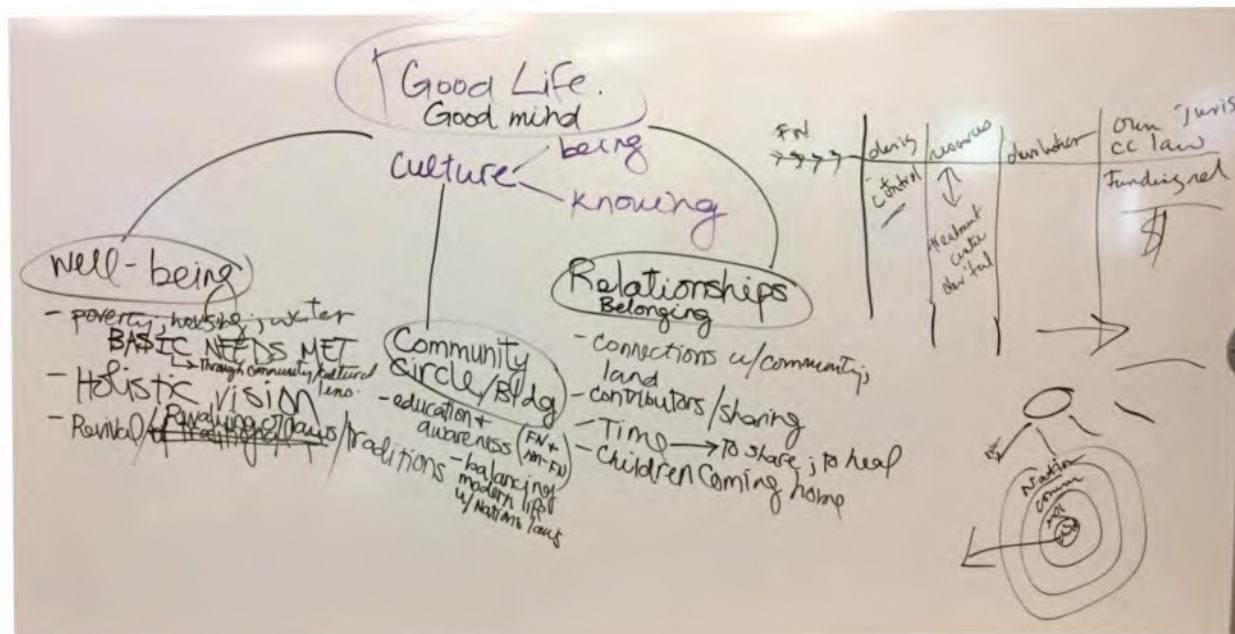 Good Life.
Good mind
culture
being
knowing
well-being
- poverty; housing; water
BASIC NEEDS MET
Through community/cultural lens.
- Holistic vision
- Revival/ Revaluing of laws/traditions
Community
Circle/Bldg
- education &
awareness (FN & non-FN)
- balancing
modern life
w/Nations laws
Relationships
Belonging
- connections w/community;
land
- contributors/sharing
- Time → To share; to heal
- Children Coming home
FN
resources
own juris
CC law
control
Funding rel
$
treatment
Nation
comm